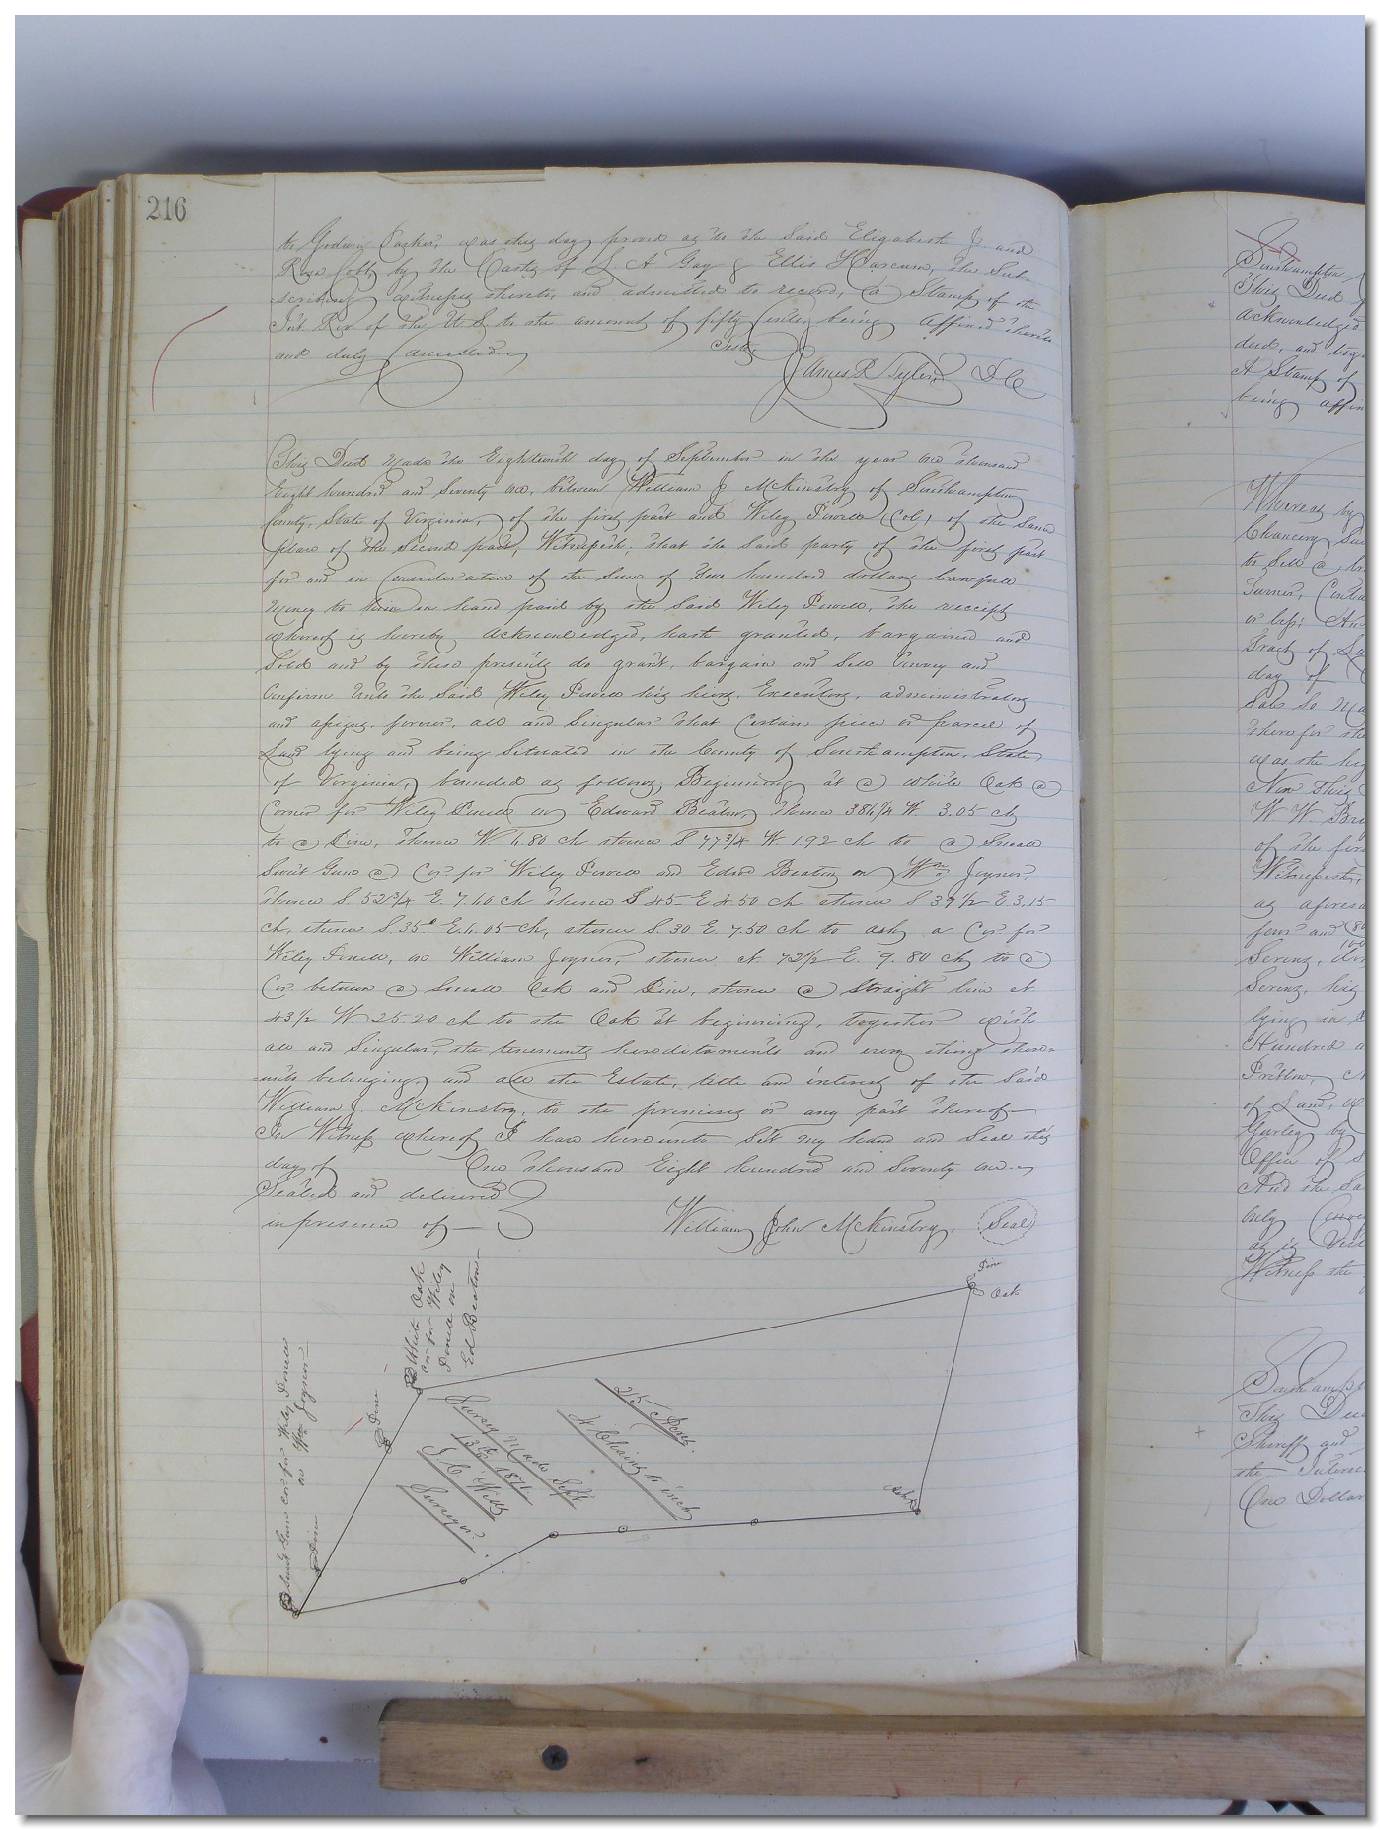 216
to Godwin Parker, was this day proved as to the said Elizabeth J. and
Rose Cobb by the Oaths of L. A. Gay & Ellis Harcum, the Sub-
scribing witnesses thereto, and admitted to record, a Stamp of the
Int Rev of the U S to the amount of fifty Cents being affixed thereto
and duly Cancelled
Teste
James R Tyler D C
This Deed made the Eighteenth day of September in the year One thousand
Eight hundred and Seventy one, between William J McKinstry of Southampton
County, State of Virginia, of the first part and Wiley Powell (Col) of the Same
place of the Second part, Witnesseth, that the Said party of the first part
for and in Consideration of the Sum of hundred dollars lawfull
money to him in hand paid by the Said Wiley Powell, the receipt
whereof is hereby acknowledged, hath granted, bargained and
Sold and by these presents do grant, bargain and Sell Convey and
Confirm Unto the Said Wiley Powell his heirs, Executors, administrators
and assigns, forever, all and Singular that Certain piece or parcel of
Land lying and being Situated in the County of Southampton, State
of Virginia, bounded as follows, Beginning at a white Oak a
Corner for Wiley Powell on Edward Beaton, thence 3.05 ch
to a Pine, thence W. 6.80 ch thence S 77 3/4 W. 1.92 ch to a Small
Sweet Gum a Cor. for Wiley Powell and Edwd Beaton on Wm Joyner,
thence S. 52 3/4 E. 7.10 ch thence S 45 E 4.50 ch thence S 39 1/2 E 3.15
ch, thence S. 35° E. 6.05 ch, thence S. 30 E. 7.50 ch to ash, a Cor. for
Wiley Powell, on William Joyner, thence N. 72 1/2 E. 9.80 ch to a
Cor. between a Small Oak and Pine, thence a Straight line N
43 1/2 W 25.20 ch to the Oak at beginning, together with
all and Singular, the tenements hereditaments and every thing there-
unto belonging, and all the Estate, title and interest of the Said
William J. McKinstry, to the premises or any part thereof
In Witness whereof I have hereunto Set my hand and Seal this
day of One thousand Eight hundred and Seventy one
Sealed and delivered
in presence of
William John McKinstry. Seal
Pine
Oak
White Oak
cor for Wiley
Powell on
Ed Beaton
Pine
Sweet Gum cor for Wiley Powell
on Wm Joyner
Pine
Survey Made Sept
13th 1871
J. C. Wills
Surveyor.
25 Acres.
4 Chains to inch
Ash
Southampton
This Deed
acknowledged
deed, and
A Stamp of
being
Whereas by
Chancery
to Sell
Turner,
or less;
Tract of
day of
Sale So
therefor
was the
Now This
W W
of the
Witnesseth,
as
four and
lying in
Hundred
Pretlow,
of Land,
Gurley by
Office of
And the
only
as is
Witness the
This
Sheriff and
the
One Dollar